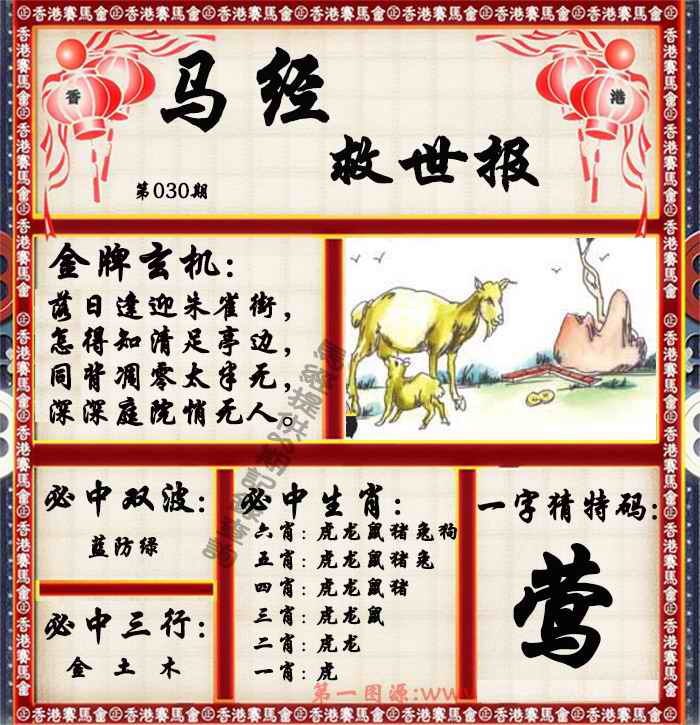 香港賽馬會
香
港
马经
救世报
第030期
金牌玄机:
落日逢迎朱雀街,
怎得知清足亭边,
同背凋零太半无,
深深庭院悄无人。
必中双波:
蓝防绿
必中三行:
金 土 木
必中生肖:
六肖:虎龙鼠猪兔狗
五肖:虎龙鼠猪兔
四肖:虎龙鼠猪
三肖:虎龙鼠
二肖:虎龙
一肖:虎
一字猜特码:
莺
第一图源:www